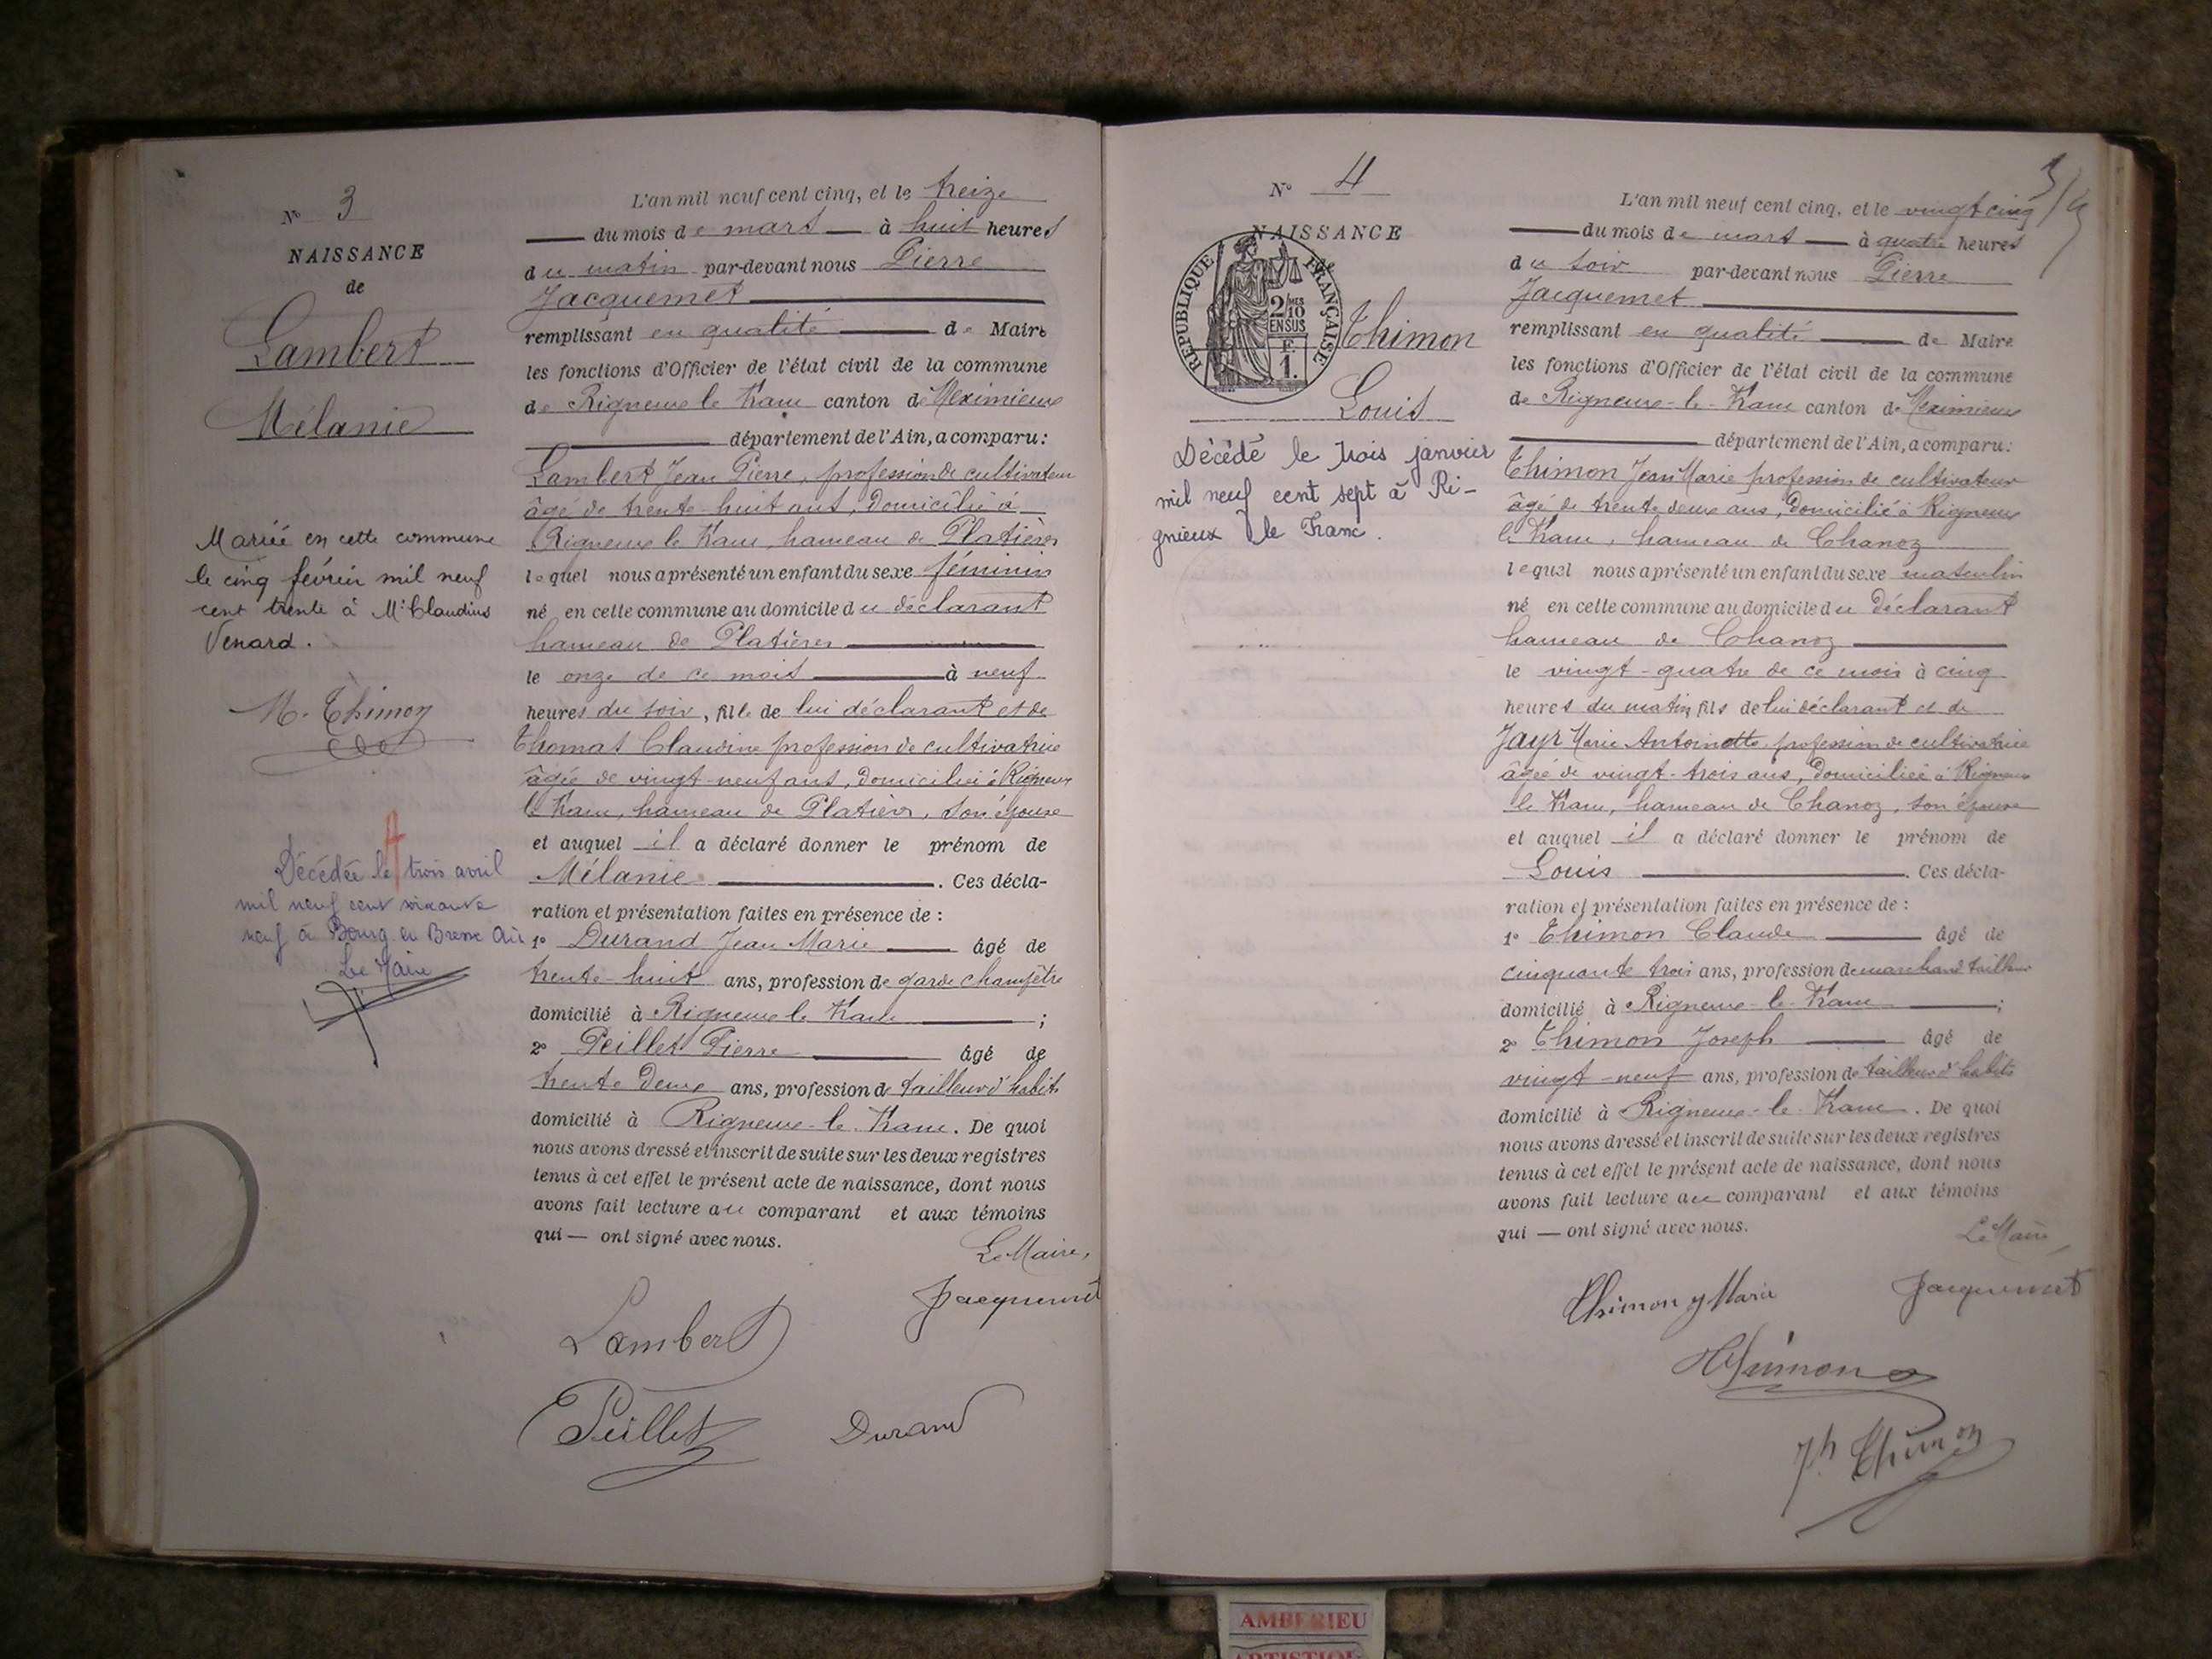 N° 3
NAISSANCE
de
Lambert
Mélanie
Mariée en cette commune
le cinq février mil neuf
cent trente à Mr Claudius
Venard.
M. Thimon
Décédée le trois avril
mil neuf cent soixante
neuf à Bourg en Bresse Ain
Le Maire
L'an mil neuf cent cinq, et le treize
du mois de mars à huit heures
du matin par-devant nous Pierre
Jacquemet
remplissant en qualité de Maire
les fonctions d'Officier de l'état civil de la commune
de Rigneux le Franc canton de Meximieux
département de l'Ain, a comparu :
Lambert Jean Pierre, profession de cultivateur
âgé de trente-huit ans, domicilié à
Rigneux le Franc, hameau de Platières
lequel nous a présenté un enfant du sexe féminin
né en cette commune au domicile du déclarant
hameau de Platières
le onze de ce mois à neuf
heures du soir, fille de lui déclarant et de
Thomas Claudine profession de cultivatrice
âgée de vingt-neuf ans, domiciliée à Rigneux
le Franc, hameau de Platières, son épouse
et auquel il a déclaré donner le prénom de
Mélanie. Ces décla-
ration et présentation faites en présence de :
1° Durand Jean Marie âgé de
trente-huit ans, profession de garde champêtre
domicilié à Rigneux le Franc ;
2° Peillet Pierre âgé de
trente deux ans, profession de tailleur d'habits
domicilié à Rigneux-le-Franc. De quoi
nous avons dressé et inscrit de suite sur les deux registres
tenus à cet effet le présent acte de naissance, dont nous
avons fait lecture au comparant et aux témoins
qui — ont signé avec nous.
Le Maire,
Jacquemet
Lambert
Peillet Durand
N° 4
NAISSANCE
RÉPUBLIQUE FRANÇAISE
2/10 MES
EN SUS
F.
1.
Thimon
Louis
Décédé le trois janvier
mil neuf cent sept à Ri-
gnieux le Franc.
L'an mil neuf cent cinq, et le vingt cinq
du mois de mars à quatre heures
du soir par-devant nous Pierre
Jacquemet
remplissant en qualité de Maire
les fonctions d'Officier de l'état civil de la commune
de Rigneux-le-Franc canton de Meximieux
département de l'Ain, a comparu :
Thimon Jean Marie profession de cultivateur
âgé de trente deux ans, domicilié à Rigneux
le Franc, hameau de Chanoz
lequel nous a présenté un enfant du sexe masculin
né en cette commune au domicile du déclarant
hameau de Chanoz
le vingt-quatre de ce mois à cinq
heures du matin, fils de lui déclarant et de
Jayr Marie Antoinette, profession de cultivatrice
âgée de vingt-trois ans, domiciliée à Rigneux
le Franc, hameau de Chanoz, son épouse
et auquel il a déclaré donner le prénom de
Louis. Ces décla-
ration et présentation faites en présence de :
1° Thimon Claude âgé de
cinquante trois ans, profession de marchand tailleur
domicilié à Rigneux-le-Franc ;
2° Thimon Joseph âgé de
vingt-neuf ans, profession de tailleur d'habits
domicilié à Rigneux-le-Franc. De quoi
nous avons dressé et inscrit de suite sur les deux registres
tenus à cet effet le présent acte de naissance, dont nous
avons fait lecture au comparant et aux témoins
qui — ont signé avec nous.
Le Maire,
Thimon J Marie Jacquemet
Thimon
Jh Thimon
AMBERIEU